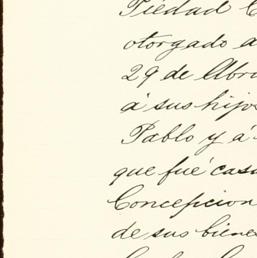 Piedad C
otorgado a
29 de Abri
á sus hijo
Pablo y á
que fué casa
Concepcion
de sus biene